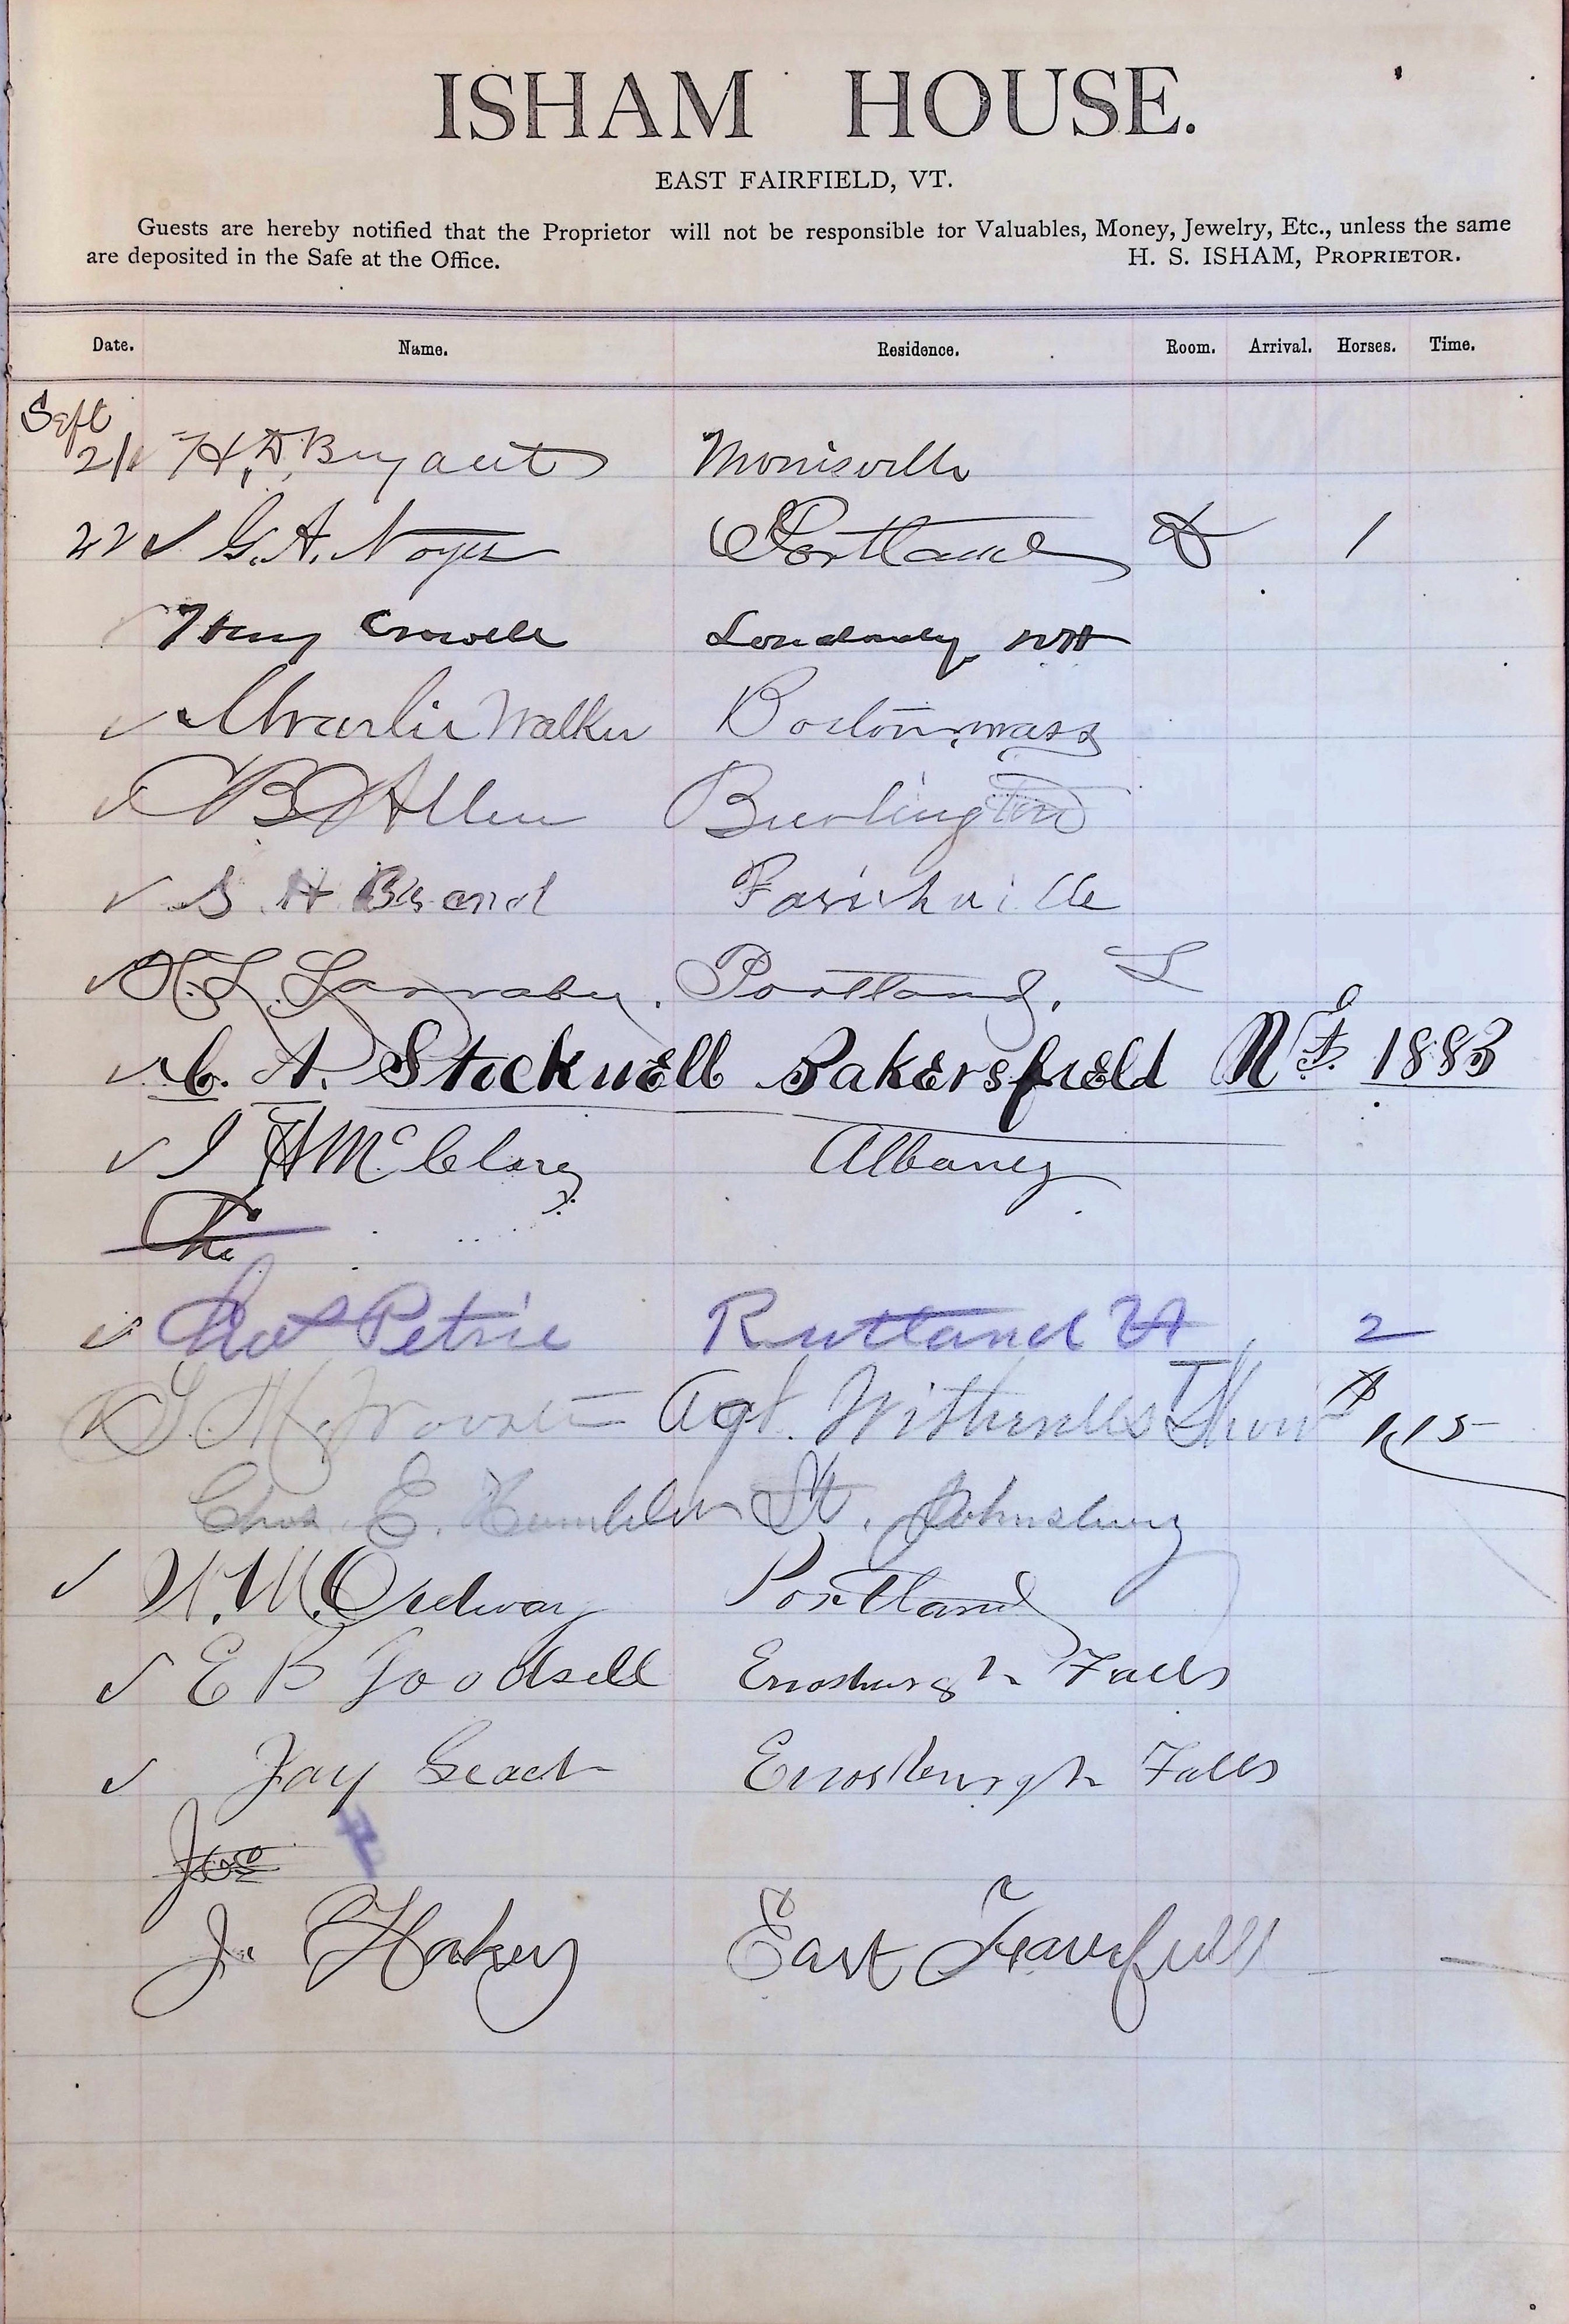 ISHAM HOUSE.
EAST FAIRFIELD, VT.
Guests are hereby notified that the Proprietor will not be responsible for Valuables, Money, Jewelry, Etc., unless the same
are deposited in the Safe at the Office. H. S. ISHAM, PROPRIETOR.
Date. Name. Residence. Room. Arrival. Horses. Time.
Sept
21 H. D. Bryant Morrisville
22 G. A. Noyes Portland 1
Henry Crowell Londonderry NH
Charlie Walker Boston mass
Allen Burlington
S H Parishville
H. L. Larrabee. Portland. L
C. A. Stockwell Bakersfield Vt. 1883
J H McClary Albany
Petrie Rutland Vt 2
Agt. Witherells Show
Chas. E. St. Johnsbury
W. M. Ordway Portland
E B Goodsell Enosburgh Falls
Jay Enosburgh Falls
Joe
J. Hakey East Fairfield